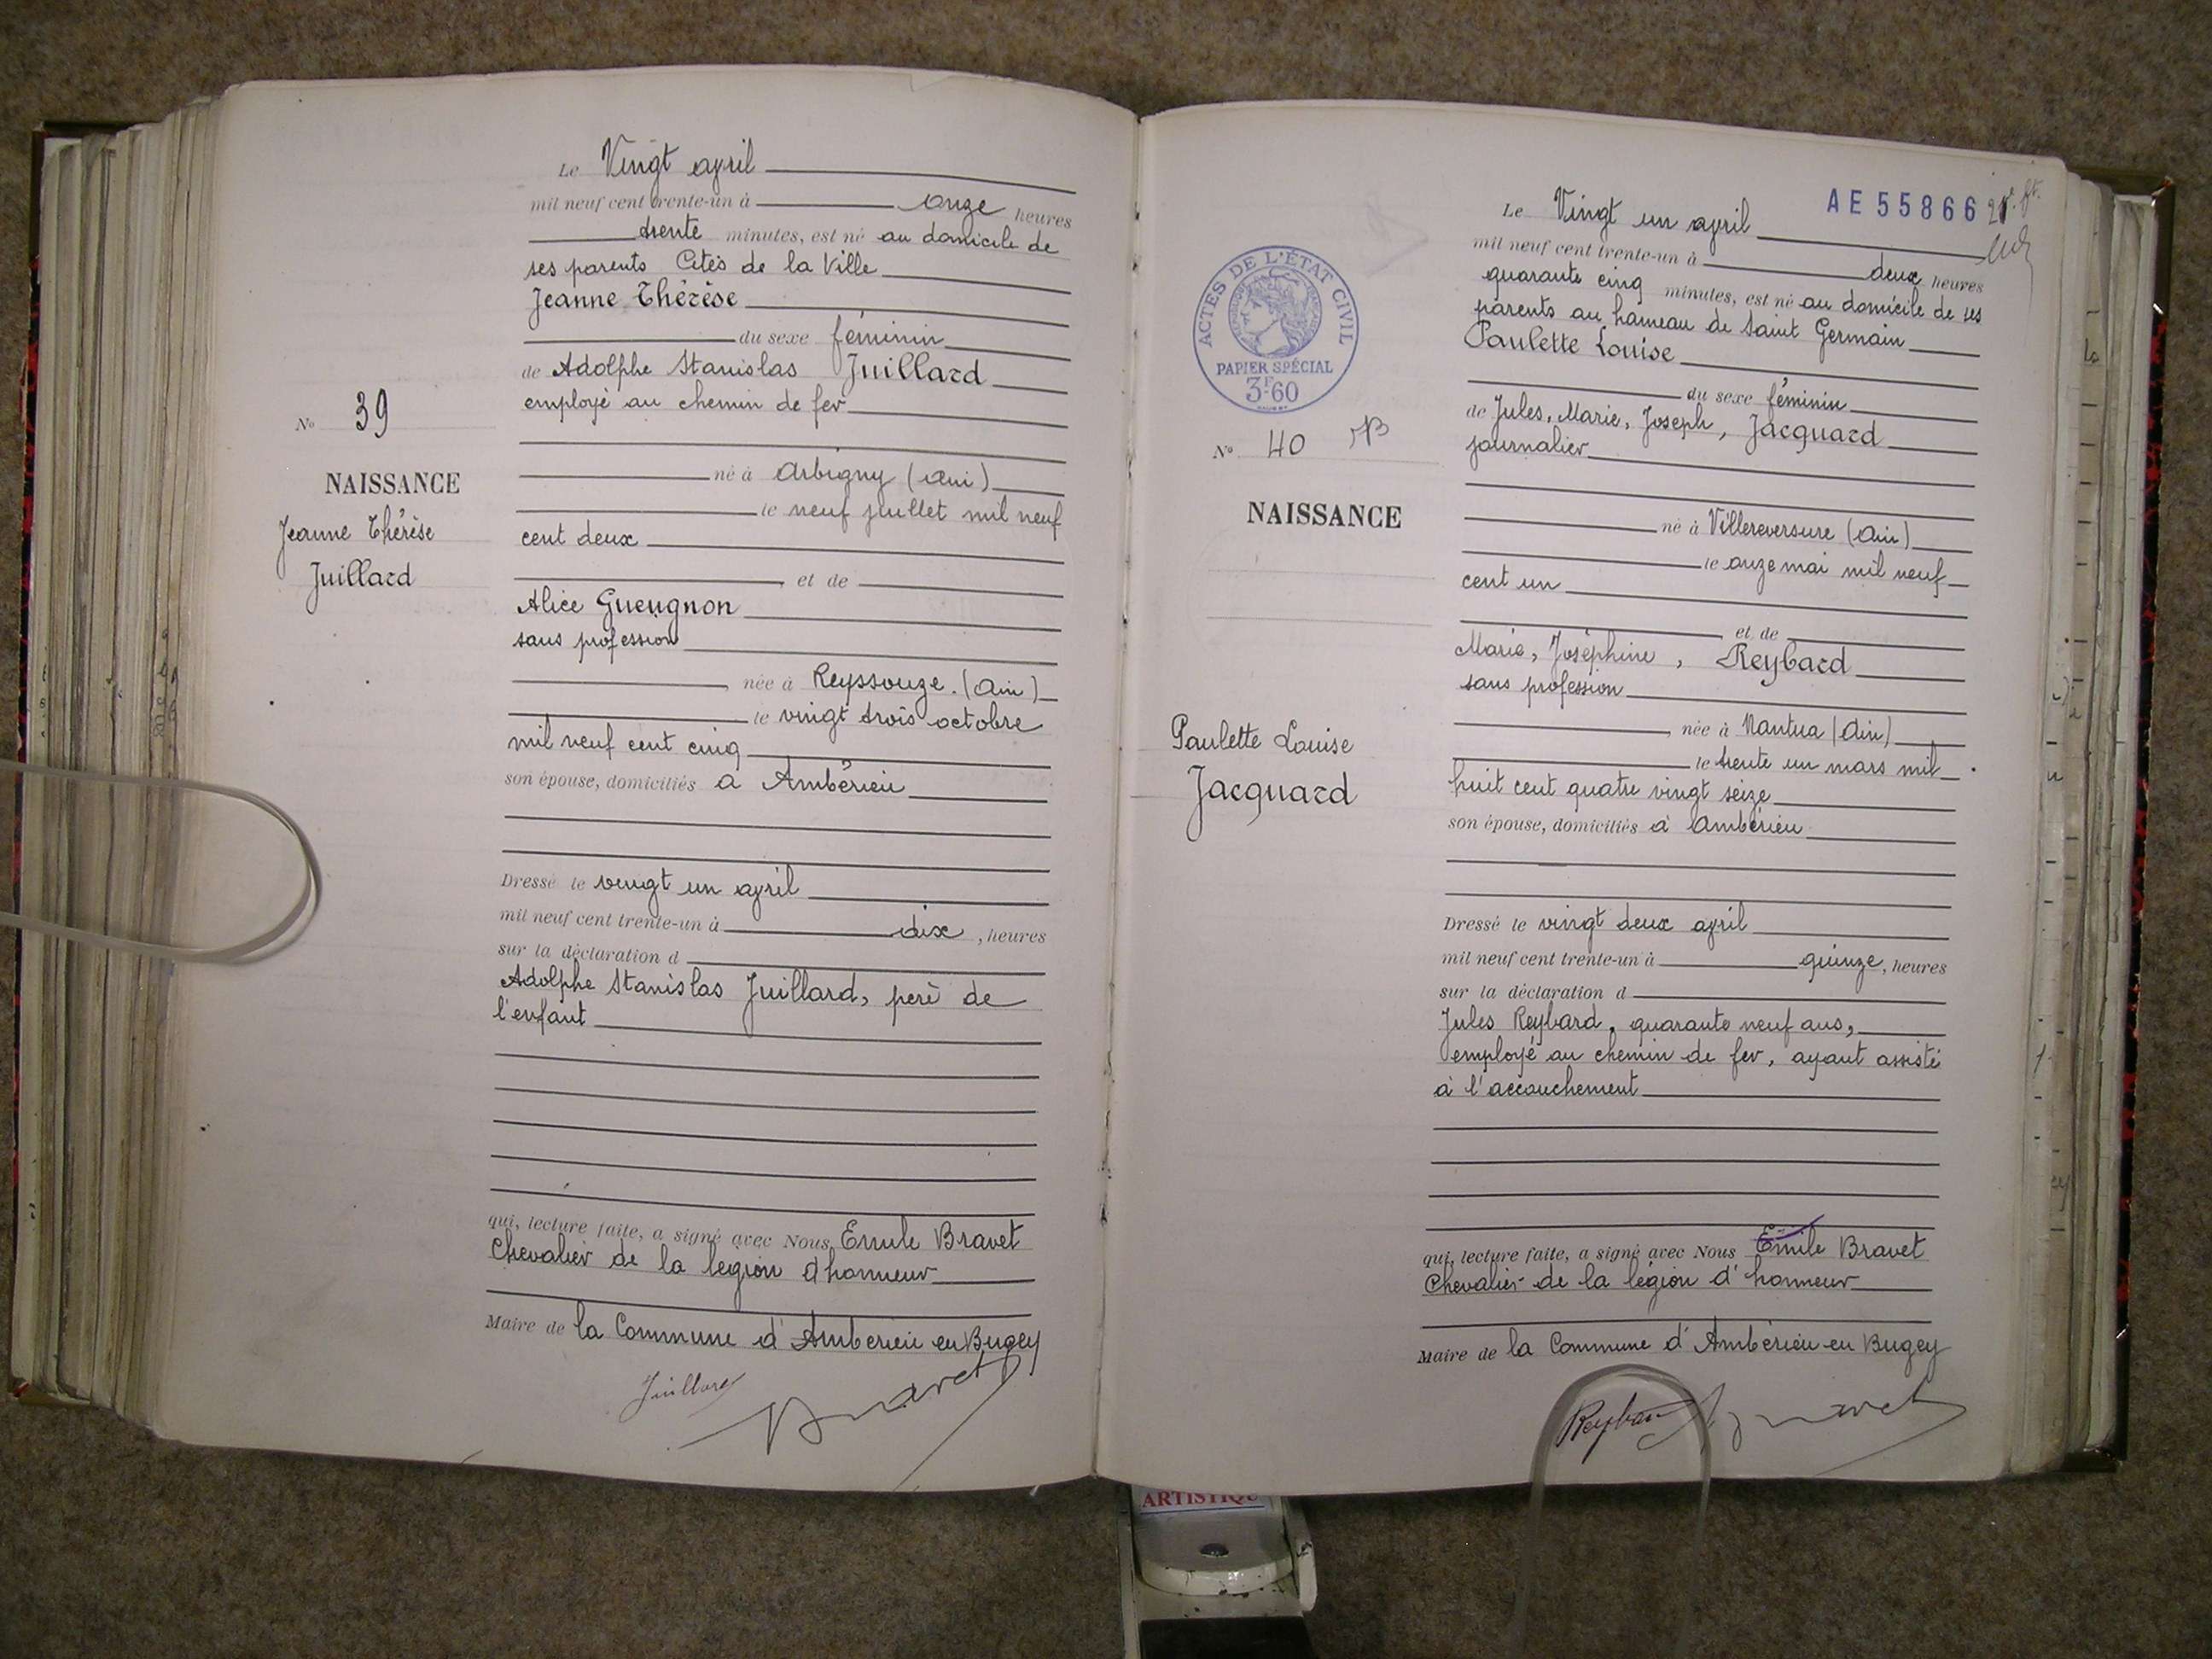 Le Vingt avril
mil neuf cent trente-un à onze heures
trente minutes, est né au domicile de
ses parents Cités de la Ville
Jeanne Thérèse
du sexe féminin
de Adolphe Stanislas Juillard
employé au chemin de fer
né à Arbigny (Ain)
le neuf juillet mil neuf
cent deux
et de
Alice Gueugnon
sans profession
née à Reyssouze. (Ain)
le vingt trois octobre
mil neuf cent cinq
son épouse, domiciliés à Ambérieu
Dressé le vingt un avril
mil neuf cent trente-un à dix, heures
sur la déclaration d
Adolphe Stanislas Juillard, père de
l'enfant
qui, lecture faite, a signé avec Nous, Emile Bravet
Chevalier de la légion d'honneur
Maire de la Commune d'Ambérieu en Bugey
Juillard
Bravet
No 39
NAISSANCE
Jeanne Thérèse
Juillard
AE55866
Le Vingt un avril
mil neuf cent trente-un à deux heures
quarante cinq minutes, est né au domicile de ses
parents au hameau de Saint Germain
Paulette Louise
du sexe féminin
de Jules, Marie, Joseph, Jacquard
journalier
né à Villereversure (Ain)
le onze mai mil neuf
cent un
et de
Marie, Joséphine, Reybard
sans profession
née à Nantua (Ain)
le trente un mars mil
huit cent quatre vingt seize
son épouse, domiciliés à Ambérieu
Dressé le vingt deux avril
mil neuf cent trente-un à quinze, heures
sur la déclaration d
Jules Reybard, quarante neuf ans,
employé au chemin de fer, ayant assisté
à l'accouchement
qui, lecture faite, a signé avec Nous Emile Bravet
Chevalier de la légion d'honneur
Maire de la Commune d'Ambérieu en Bugey
Reybard Bravet
ACTES DE L'ÉTAT CIVIL
RÉPUBLIQUE FRANÇAISE
PAPIER SPÉCIAL
3F.60
No 40
NAISSANCE
Paulette Louise
Jacquard
ARTISTIQU